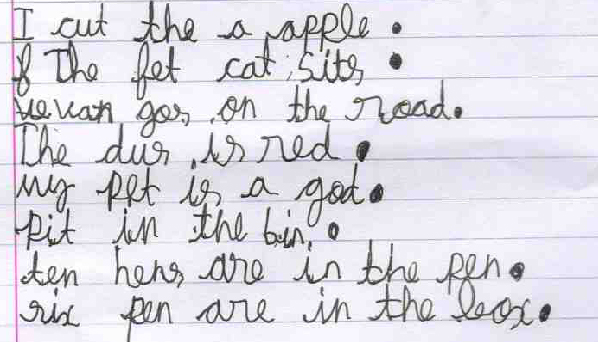 I cut the a apple.
The fet cat sits.
van gos on the road.
The dus is red.
my pet is a god.
Pit in the bin.
ten hens are in the pen.
six pen are in the box.